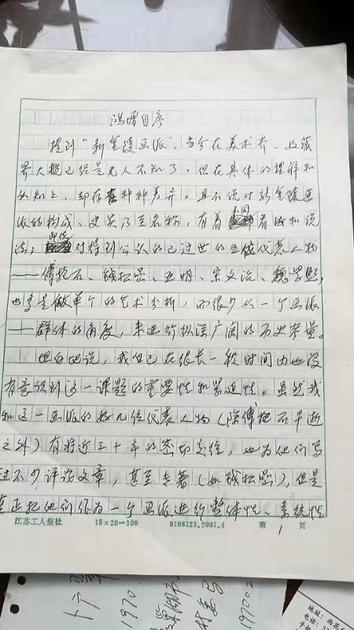 鸿增自序
提到“新金陵画派”，当今在美术界、收藏
界大概已经是无人不知了，但在具体的理解和
认知上，却存在种种差异。且不说对新金陵画
派的构成、史实乃至名称，有着各自看法和说
法；对得到公认的已过世的五位代表人物
——傅抱石、钱松喦、亚明、宋文治、魏紫熙，
也多是做单个的艺术分析，而很少从一个画派
——群体的角度，来进行纵深广阔的历史考量。
坦白地说，我自己在很长一段时间内也没
有意识到这一课题的重要性和紧迫性。虽然我
和这一画派的好几位代表人物（除傅抱石早逝
之外）有将近三十年的密切交往，也为他们写
过不少评论文章，甚至专著（如钱松喦），但是
真正把他们作为一个画派进行整体性、系统性
江苏工人报社 15×20=300 9108123.2001.4 第 1 页
1970
1970